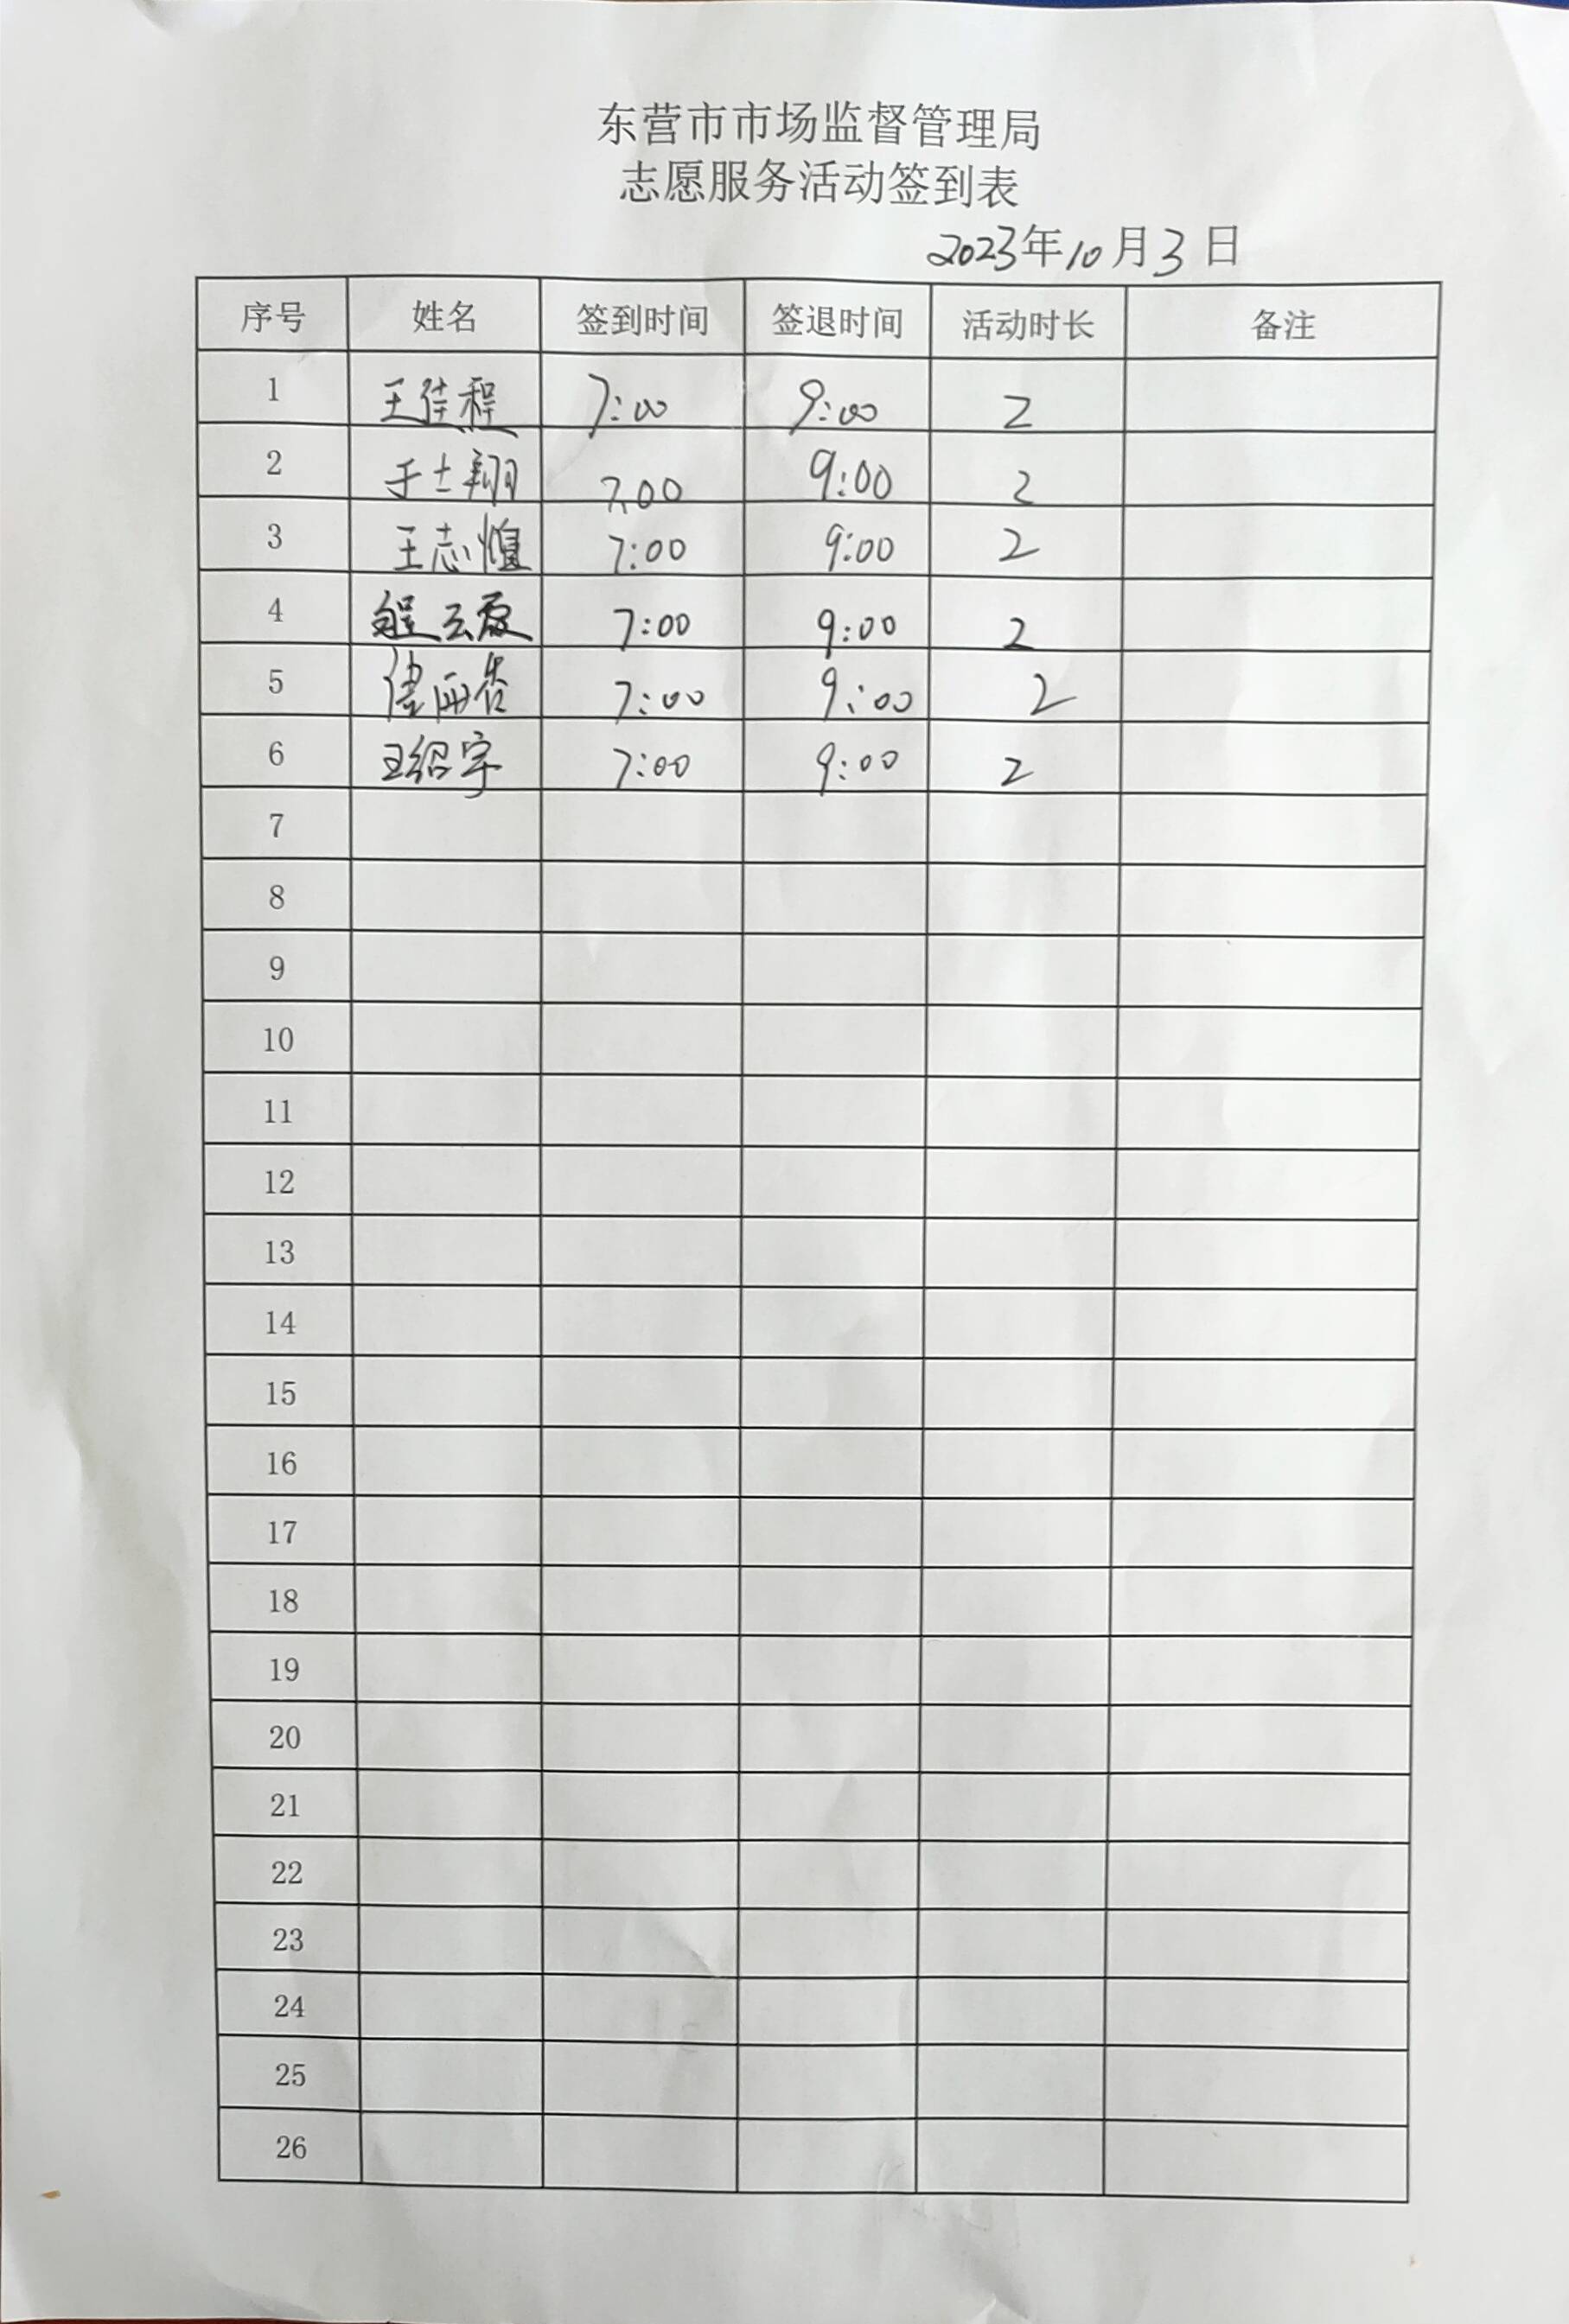 东营市市场监督管理局
志愿服务活动签到表
2023年10月3日
序号 姓名 签到时间 签退时间 活动时长 备注
1 王佳程 7:00 9:00 2
2 于士翔 7:00 9:00 2
3 王志愃 7:00 9:00 2
4 7:00 9:00 2
5 7:00 9:00 2
6 王绍宇 7:00 9:00 2
7
8
9
10
11
12
13
14
15
16
17
18
19
20
21
22
23
24
25
26